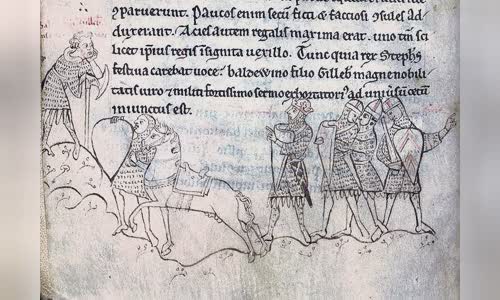 parueruut. Paucos enim secū ficti & factiosi ꝯsules ad
duxerant. Acies autem regalis maxima erat. uno tm̄ sci
licet ipsius regis insignita uexillo. Tunc quia rex Stephs̄
festiua carebat uoce: baldewino filio Gilleb̄ magne nobili
tatis uiro & militi fortissimo sermo exhortatori⁹ ad uniūsū cetū
iniunctus est.